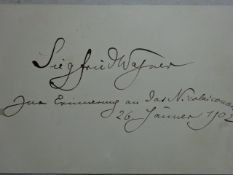 Siegfried Wagner
zur Erinnerung an das Nicolaiconcert
26 Jänner 1902